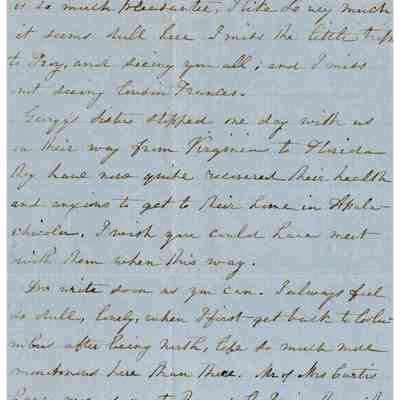 is so much pleasanter, I like so very much
it seems dull here I miss the little trips
to Troy, and seeing you all; and I miss
not seeing Cousin Frances.
Georgy's sisters stopped one day with us
on their way from Virginia to Florida
they have now quite recovered their health
and anxious to get to their home in Apala-
chicola. I wish you could have met
with them when this way.
Do write soon as you can. I always feel
so dull, lonely, when I first get back to Colu-
mbus after being north, life so much more
monotonous here than there. Mr & Mrs Curtis